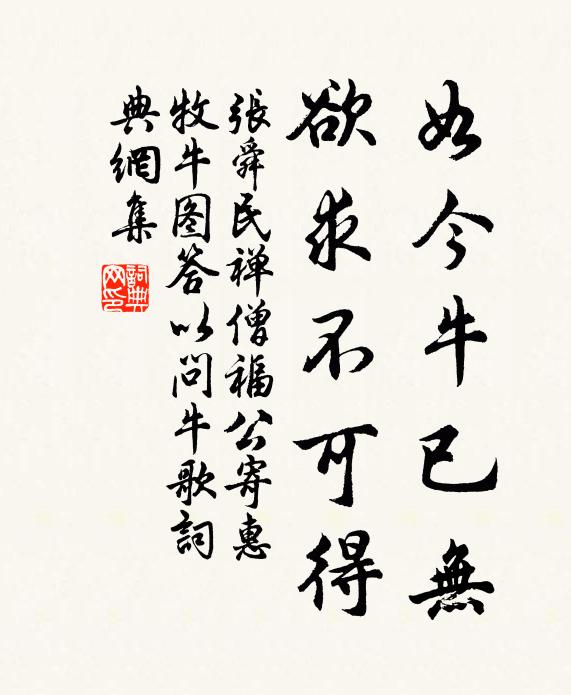 如今牛已無
欲求不可得
張舜民禅僧福公寄惠
牧牛图答以問牛歌詞
典網集
詞典
网印